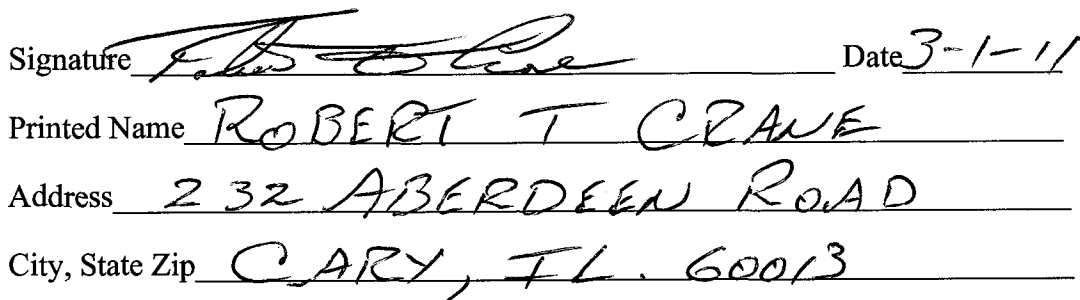 Signature Robert T Crane Date 3-1-11
Printed Name ROBERT T CRANE
Address 232 ABERDEEN ROAD
City, State Zip CARY, IL. 60013